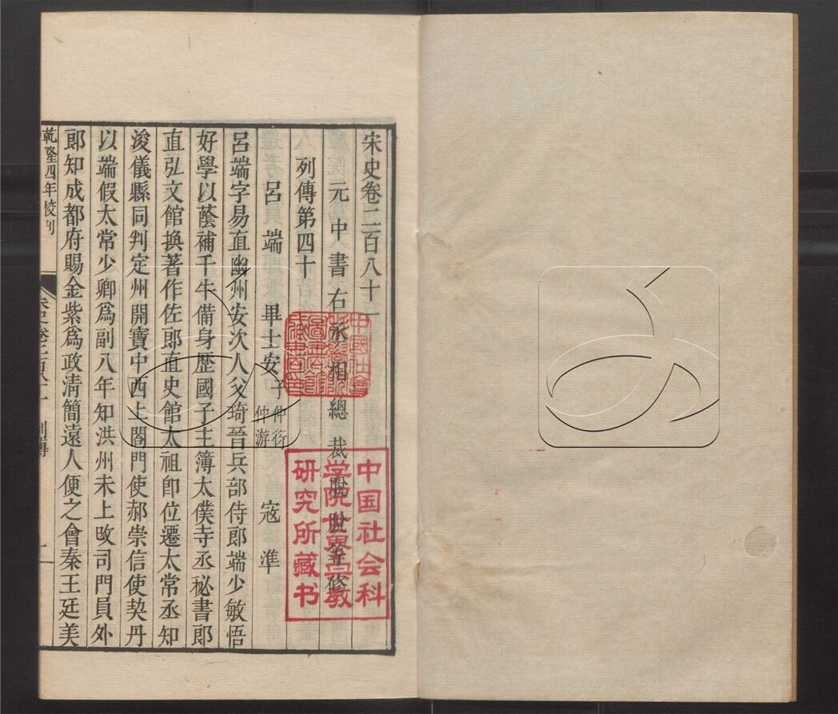 宋史卷二百八十一
元中書右丞相總裁脫脫等修
列傳第四十
呂端 畢士安 子仲衍 仲游 寇準
呂端字易直幽州安次人父琦晉兵部侍郎端少敏悟
好學以蔭補千牛備身歷國子主簿太僕寺丞秘書郎
直弘文館換著作佐郎直史館太祖卽位遷太常丞知
浚儀縣同判定州開寶中西上閤門使郝崇信使契丹
以端假太常少卿爲副八年知洪州未上改司門員外
郎知成都府賜金紫爲政清簡遠人便之會秦王廷美
乾隆四年校刊
宋史卷二百八十一 列傳
一
中国社会科
学院世界宗教
研究所藏书